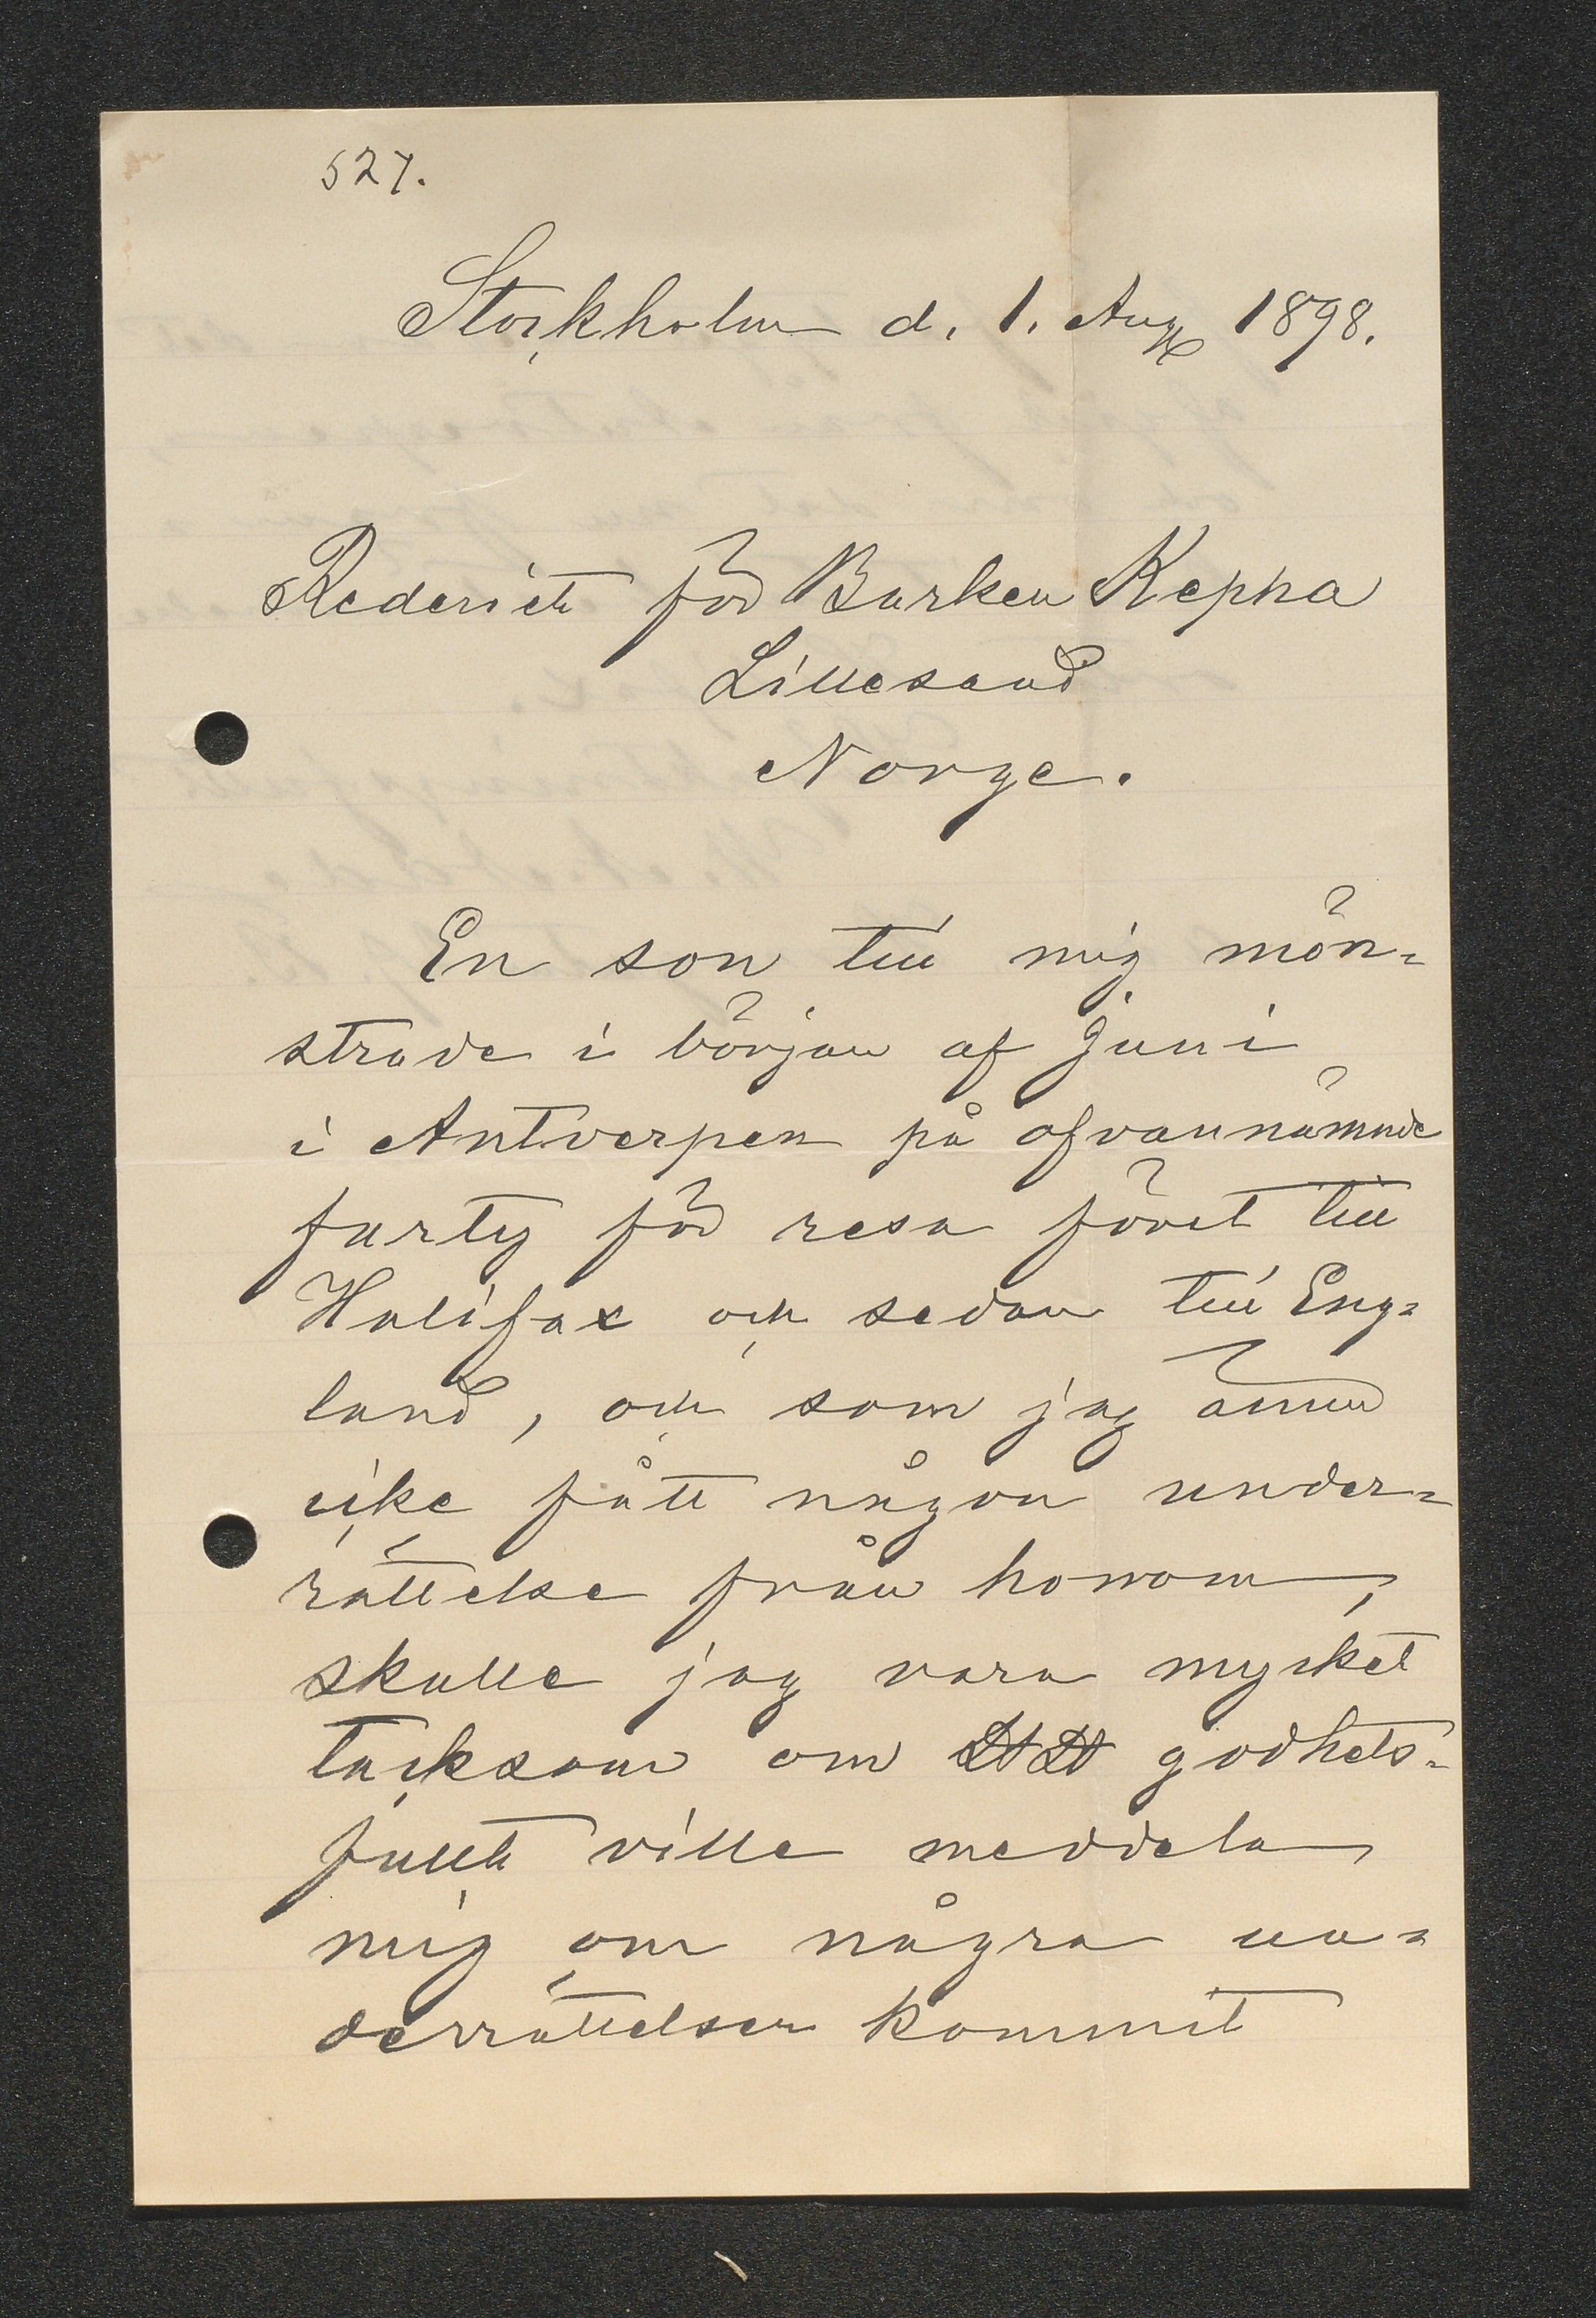 527.
Stockholm d. 1. Aug 1898.
Rederiet för Barken Kepha
Lillesand
Norge.
En son till mig mön-
strade i början af Juni
i Antverpen på ofvannämnde
fartyg för resa först till
Halifax och sedan till Eng-
land, och som jag ännu
icke fått någon under-
rättelse från honom,
skulle jag vara mycket
tacksam om godhets-
fullt ville meddela
mig om några un-
derrättelser kommit